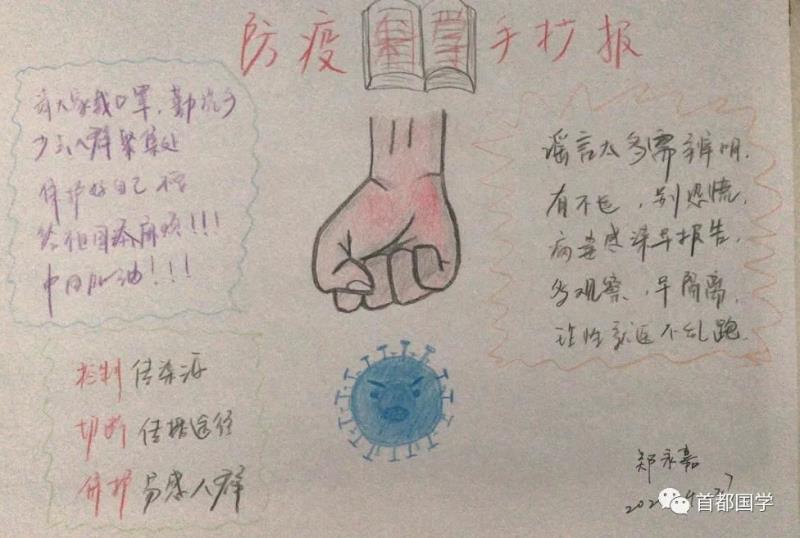 防疫科学手抄报
请大家戴口罩,勤洗手
少去人群聚集处
保护好自己不
给祖国添麻烦!!!
中国加油!!!
谣言太多需辨明,
有不适,别恐慌,
病毒感染早报告,
多观察,早隔离,
就医不乱跑.
控制传染源
切断传播途径
保护易感人群
郑永嘉
首都国学